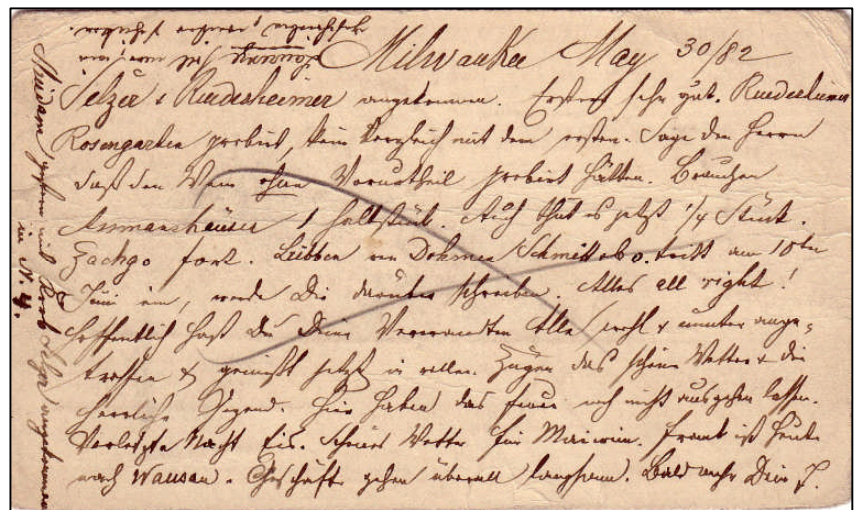 Milwaukee May 30/82
Selzer & Ruedesheimer angekommen. Erstere sehr gut. Ruedesheimer
Rosengarten probirt, kein Vergleich mit dem ersten. Sage den Herrn
daß den Wein ohne Vorurtheil probirt hätten. Brauchen
Assmanshäuser 1 Halbstück. Auch thut es jetzt 1/4 Stück.
fort. Lübben von Dohmen Schmitt & Co. tritt am 10ten
Juni ein, werde Dir darüber schreiben. Alles all right!
Hoffentlich hast Du Deine Verwandten Alle wohl & munter ange-
troffen & genießt jetzt in vollen Zügen das schöne Wetter & die
herrliche Gegend. Hier haben das Feuer noch nicht ausgehen lassen.
Vorletzte Nacht Eis. Schönes Wetter für Maiwein. Frank ist heute
nach Wausau. Geschäfte gehen überall langsam. Bald mehr Dein F.
in N.Y.